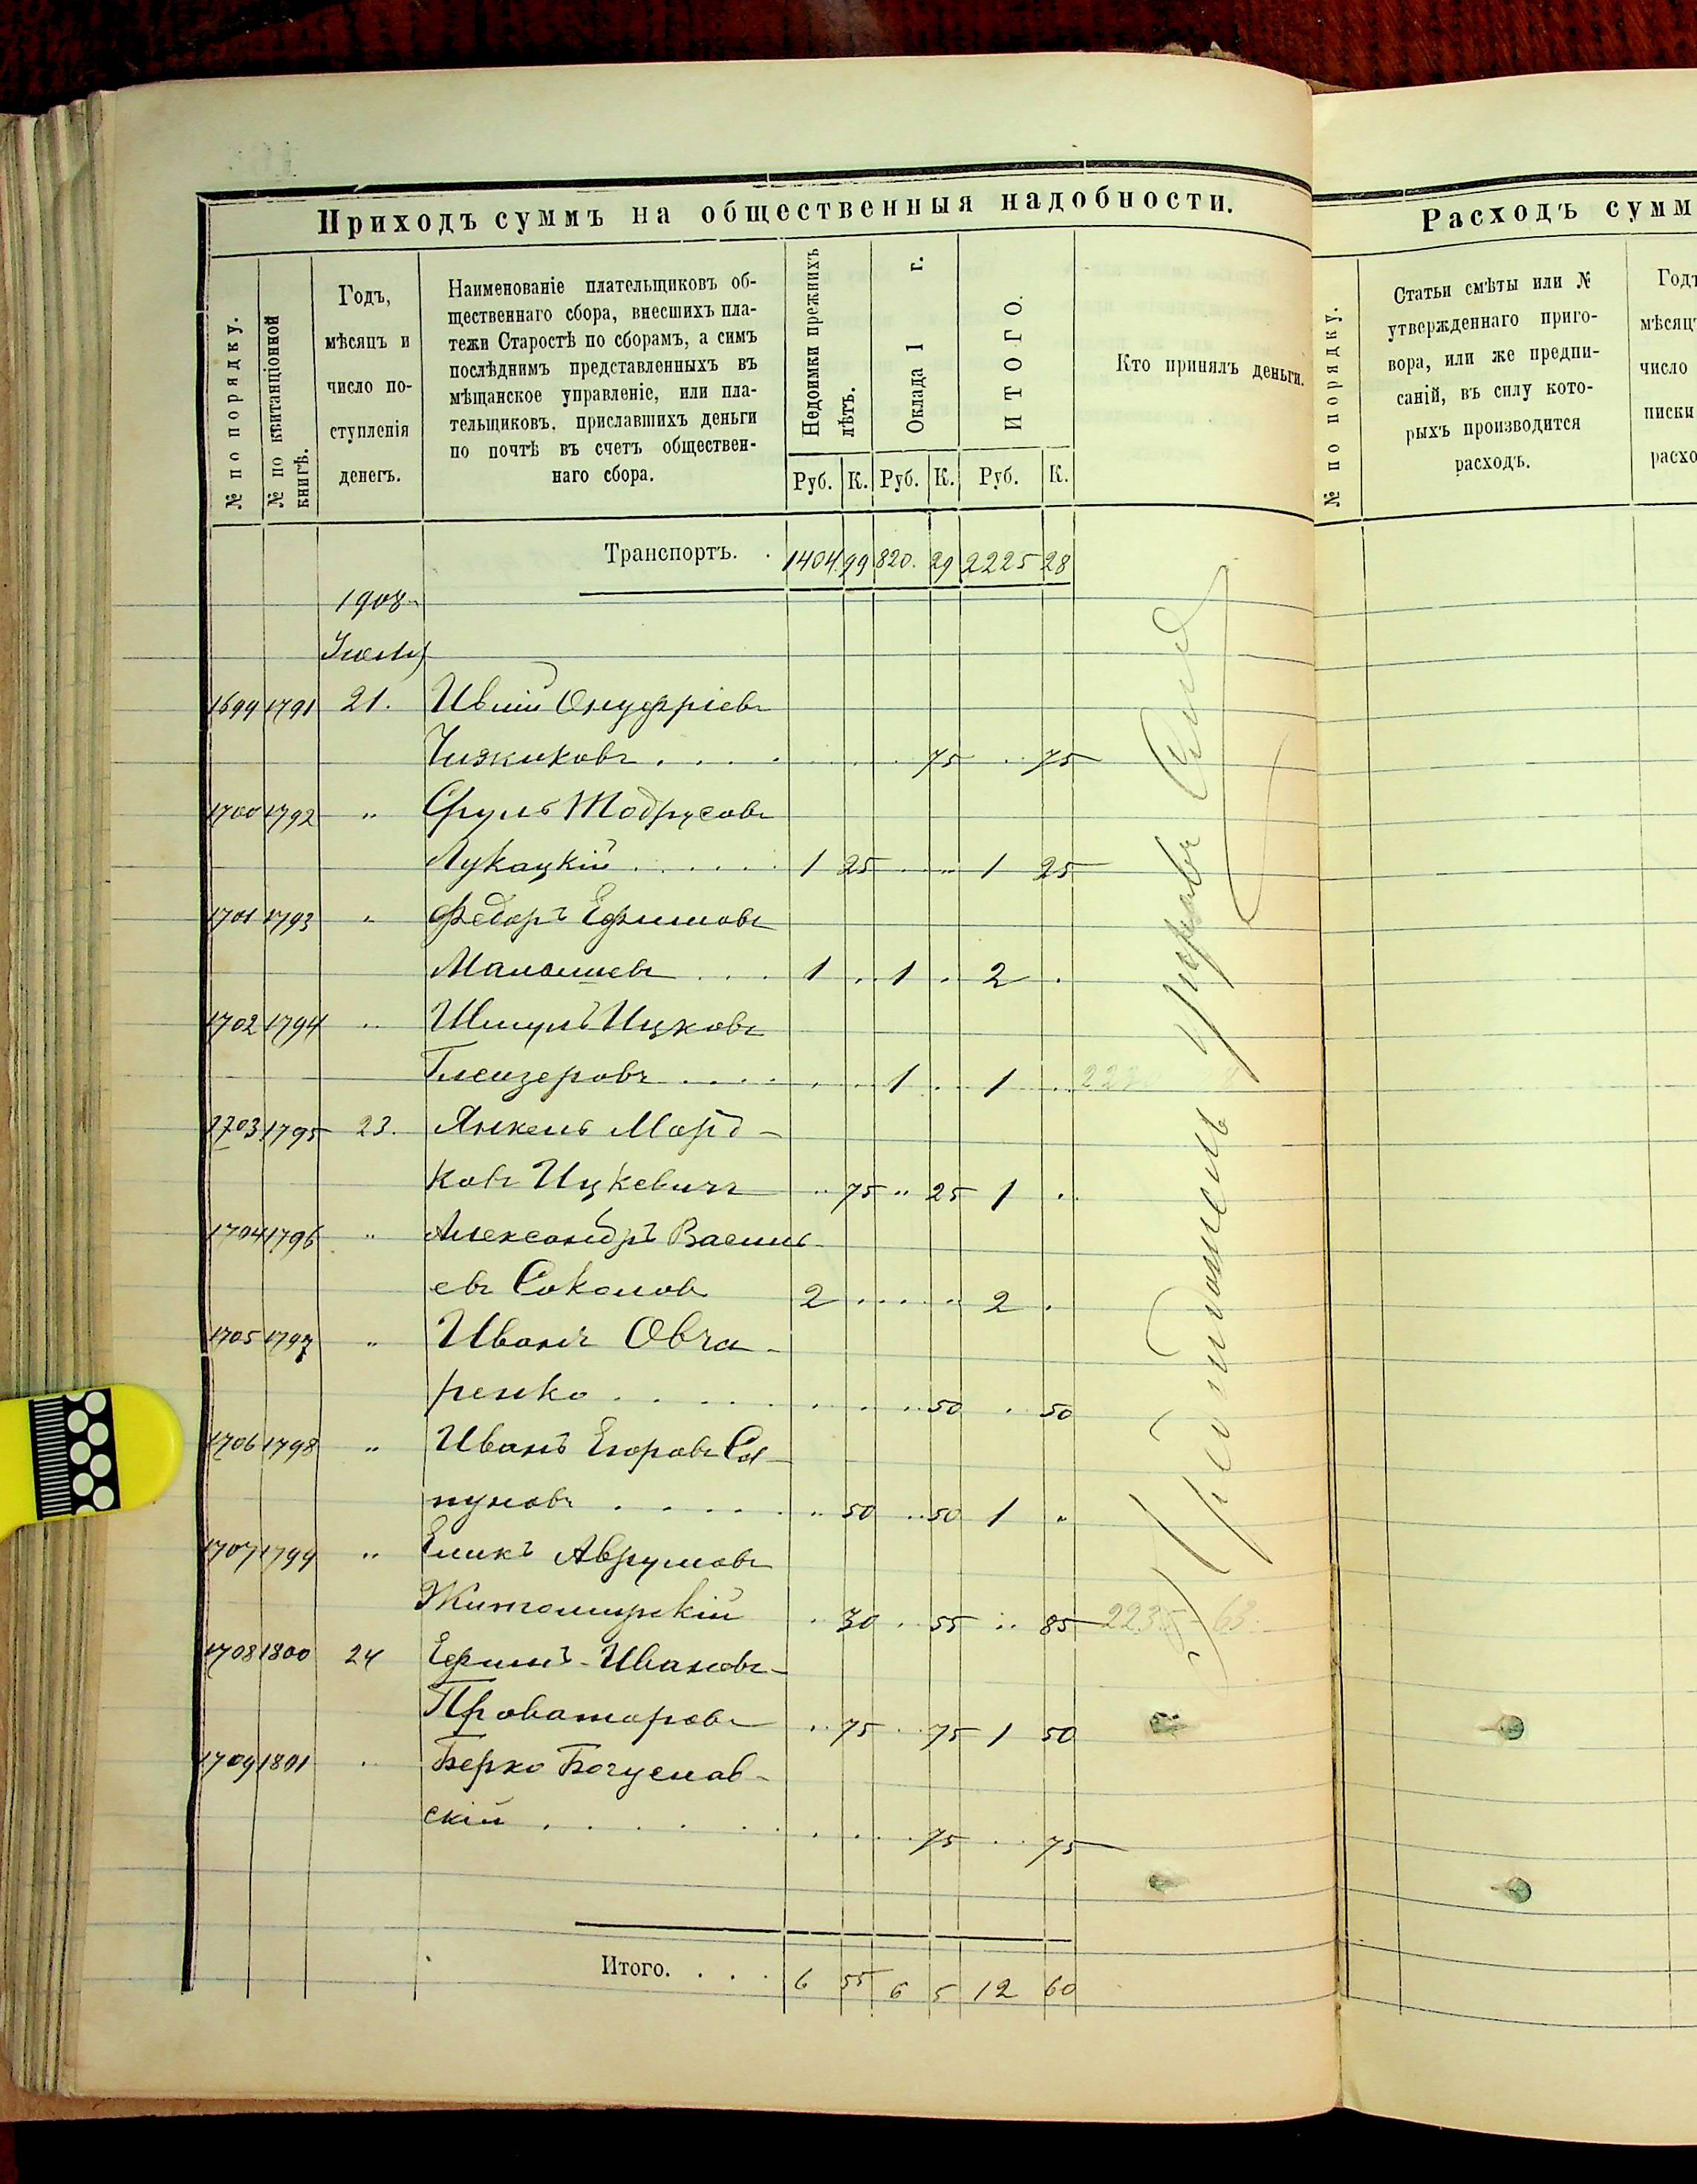 Приходъ суммъ на общественныя надобности.
№ по порядку.
№ по квитанціонной
книгѣ.
Годъ,
мѣсяцъ и
число по-
ступленія
денегъ.
Наименованіе плательщиковъ об-
щественнаго сбора, внесшихъ пла-
тежи Старостѣ по сборамъ, а симъ
послѣднимъ представленныхъ въ
мѣщанское управленіе, или пла-
тельщиковъ, приславшихъ деньги
по почтѣ въ счетъ обществен-
наго сбора.
Недоимки прежнихъ
лѣтъ.
Оклада 1 г.
ИТОГО.
Кто принялъ деньги.
Руб. К. Руб. К. Руб. К.
Транспортъ. . 1404 99 820. 29 2225 28
1908
Іюль
1699 1791 21. Онуфріевъ
Чижиковъ . . . . 75 . 75
1700 1792 " Сруль Тодрусовъ
Лукацкій . . . . . 1 25 . " 1 25
1701 1793 " Федоръ Ефимовъ
. . . 1 . . 1 . 2 .
1702 1794 " Шмуль Ицковъ
Глейзеровъ . . . . 1 . . 1 .
1703 1795 23. Янкель Морд-
ковъ Ицкевичъ " 75 " 25 1 .
1704 1796 " Александръ Василь-
евъ Соколовъ 2 . . . . " 2 .
1705 1797 " Иванъ Овча-
ренко . . . . . . . 50 . 50
1706 1798 " Иванъ Егоровъ Са-
пуновъ . . . . . " 50 " 50 1 "
1707 1799 " Аврумовъ
Житомирскій . 30 . 55 . . 85 2235 - 63
1708 1800 24 Ефимъ Ивановъ
Проваторовъ . . 75 . . 75 1 50
1709 1801 " Берко Богуслав-
скій . . . . . . . . 75 . . 75
Итого. . . . 6 55 6 5 12 60
Расходъ сумм
№ по порядку.
Статьи смѣты или №
утвержденнаго приго-
вора, или же предпи-
саній, въ силу кото-
рыхъ производится
расходъ.
Годъ
мѣсяцъ
число
писки
расхо